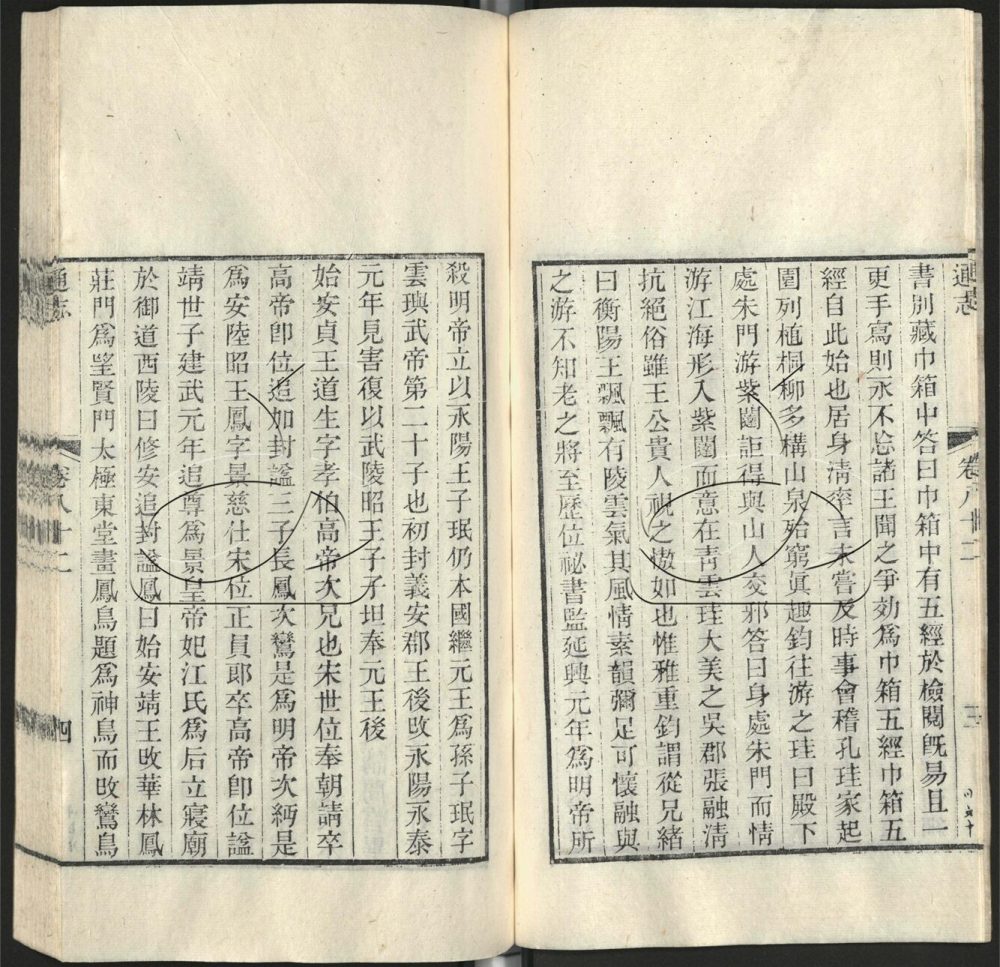 通志
卷八十二
三
書別藏巾箱中答曰巾箱中有五經於檢閱既易且一
更手寫則永不忘諸王聞之爭効爲巾箱五經巾箱五
經自此始也居身清率言未嘗及時事會稽孔珪家起
園列植桐柳多構山泉殆窮眞趣鈞往游之珪曰殿下
處朱門游紫闥詎得與山人交邪答曰身處朱門而情
游江海形入紫闥而意在靑雲珪大美之吳郡張融淸
抗絕俗雖王公貴人視之傲如也惟雅重鈞謂從兄緒
曰衡陽王飄飄有陵雲氣其風情素韻彌足可懷融與
之游不知老之將至歷位祕書監延興元年爲明帝所
殺明帝立以永陽王子珉仍本國繼元王爲孫子珉字
雲璵武帝第二十子也初封義安郡王後改永陽永泰
元年見害復以武陵昭王子子坦奉元王後
始安貞王道生字孝伯高帝次兄也宋世位奉朝請卒
高帝卽位追加封諡三子長鳳次鸞是爲明帝次緬是
爲安陸昭王鳳字景慈仕宋位正員郞卒高帝卽位諡
靖世子建武元年追尊爲景皇帝妃江氏爲后立寢廟
於御道西陵曰修安追封諡鳳曰始安靖王改華林鳳
莊門爲望賢門太極東堂畫鳳鳥題爲神鳥而改鸞鳥
通志
卷八十二
四